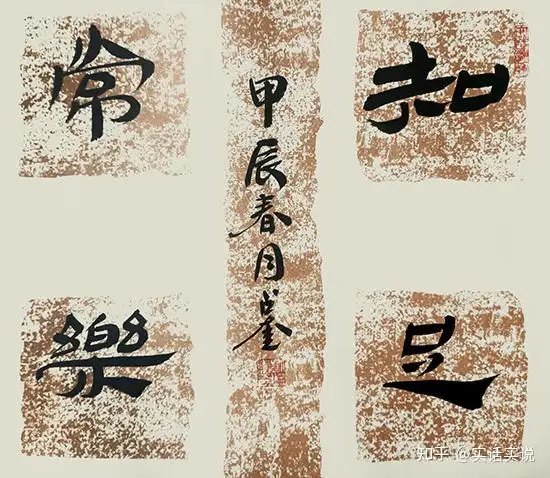 知足
常樂
甲辰春月
知乎 @实话实说